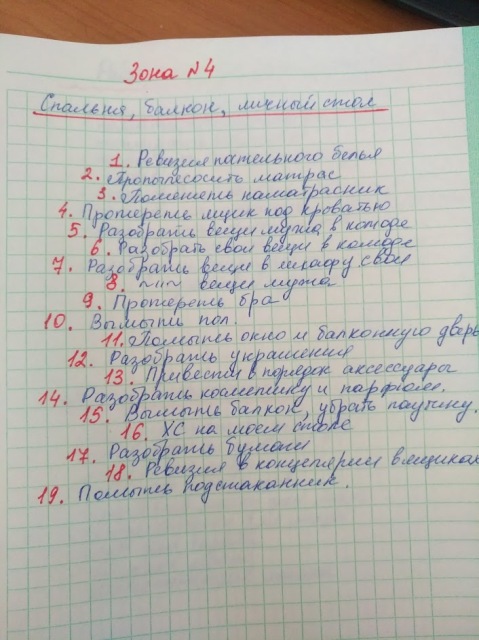 Зона №4
Спальня, балкон, личный стол
1. Ревизия постельного белья
2. Пропылесосить матрас
3. Поменять наматрасник
4. Протереть ящик под кроватью
5. Разобрать вещи мужа в комоде
6. Разобрать свои вещи в комоде
7. Разобрать вещи в шкафу свои
8. –//– вещи мужа
9. Протереть бра
10. Вымыть пол.
11. Помыть окно и балконную дверь
12. Разобрать украшения
13. Привести в порядок аксессуары
14. Разобрать косметику и парфюм.
15. Вымыть балкон, убрать паутину.
16. ХС на моем столе
17. Разобрать бумаги
18. Ревизия в концелярии в ящиках
19. Помыть подстаканник.